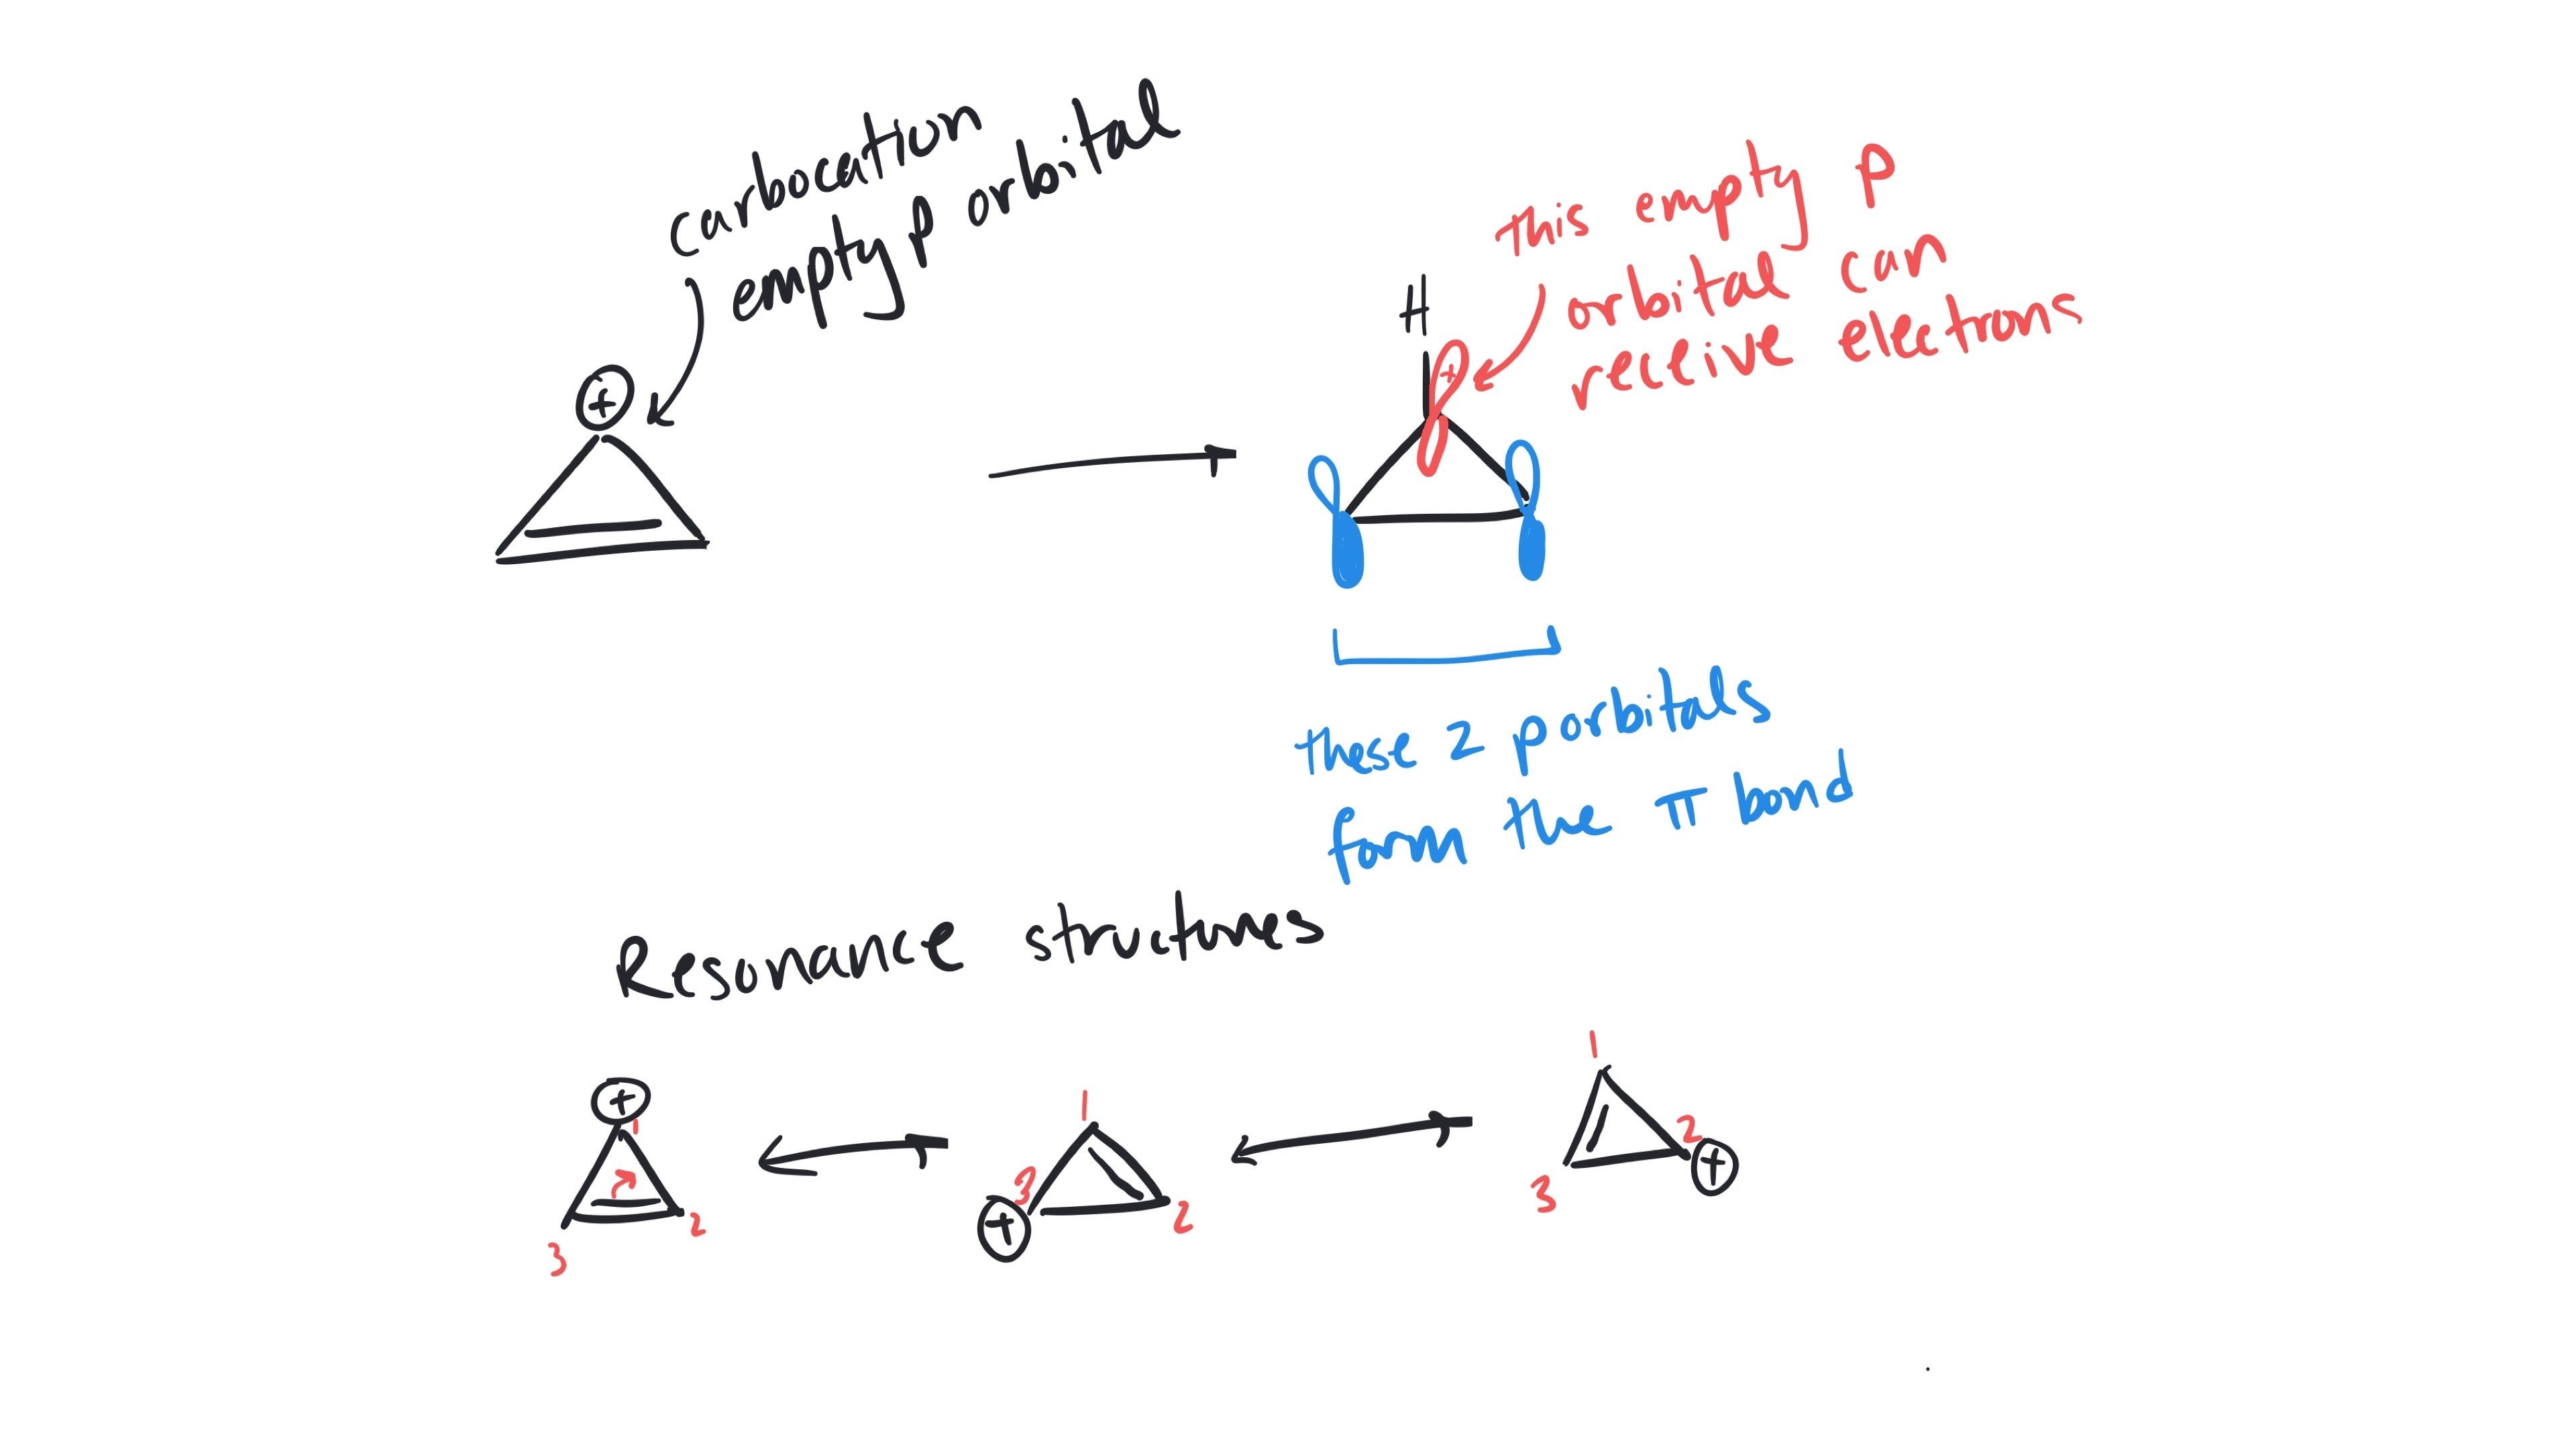 carbocation
empty p orbital
+
This empty p
orbital can
receive electrons
H
+
these 2 p orbitals
form the π bond
Resonance structures
+
1
2
3
1
2
3
+
1
2
3
+